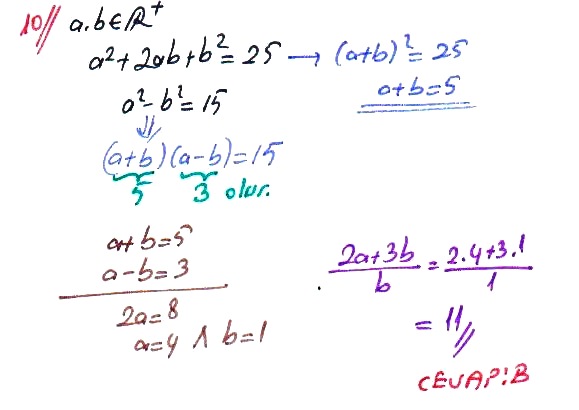 10// a.b∈R⁺
a²+2ab+b²=25 → (a+b)²=25
a+b=5
a²-b²=15
⇓
(a+b)(a-b)=15
5 3 olur.
a+b=5
a-b=3
2a=8
a=4 ∧ b=1
2a+3b/b = 2.4+3.1/1
= 11//
CEVAP:B